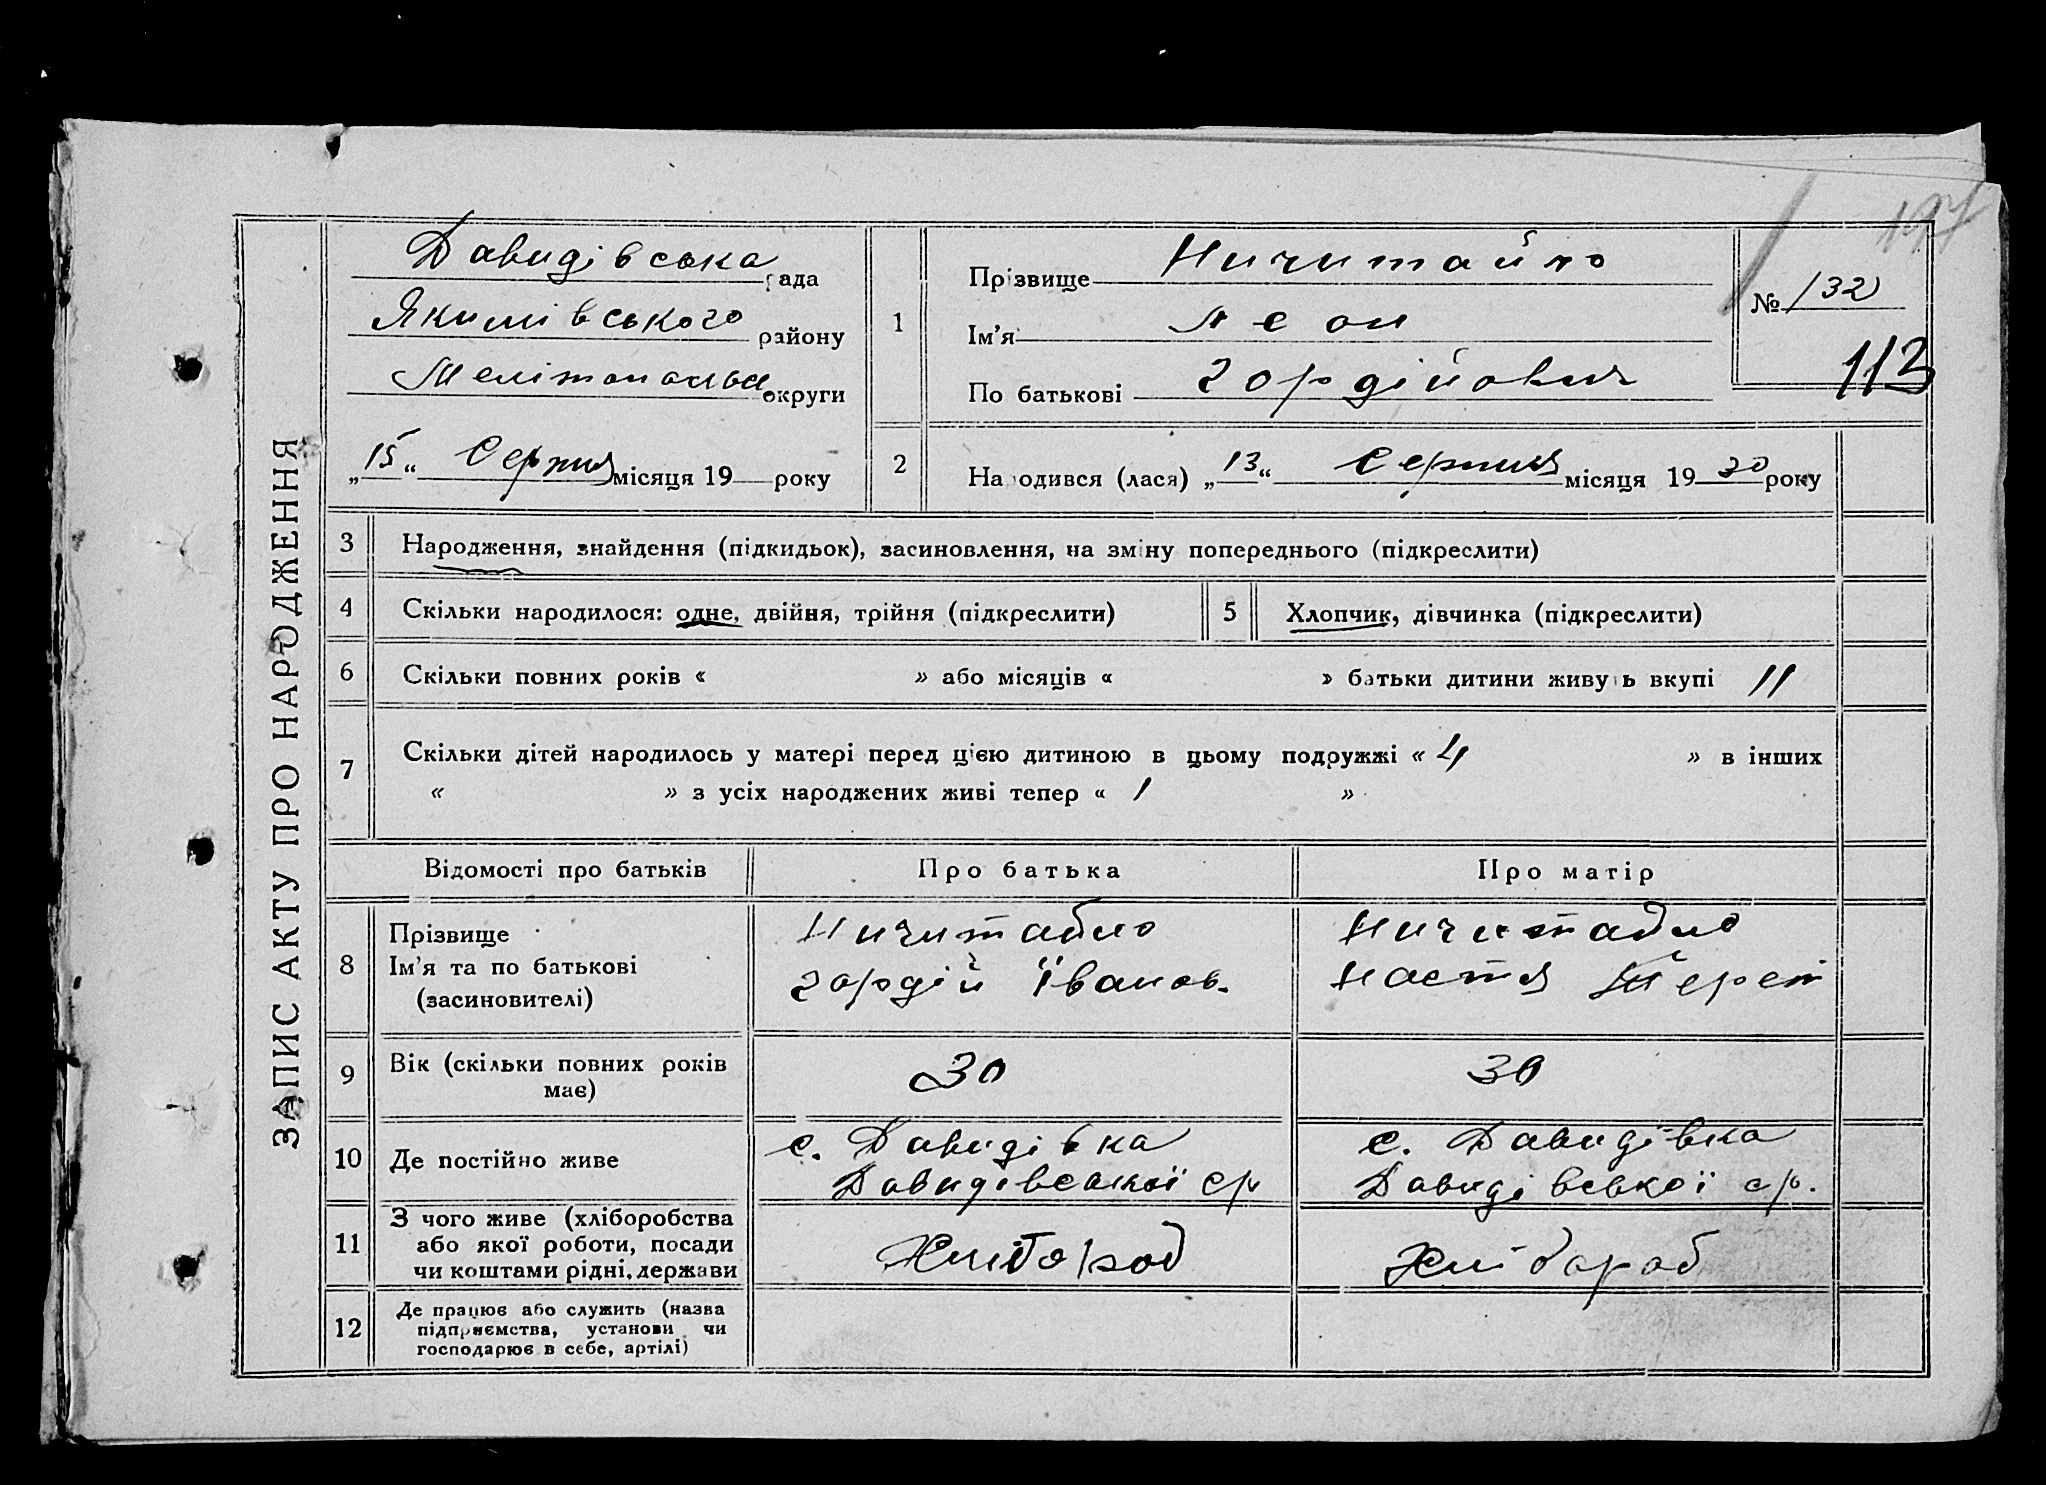 ЗАПИС АКТУ ПРО НАРОДЖЕННЯ
Давидівська рада
Якимівського району
Мелітопольс округи
„15“ Серпня місяця 19 року
1
Прізвище Ничитайло
Ім’я Леон
По батькові Гордійович
№ 132
113
2
Народився (лася) „13“ Серпня місяця 1930 року
3 Народження, знайдення (підкидьок), засиновлення, на зміну попереднього (підкреслити)
4 Скільки народилося: одне, двійня, трійня (підкреслити)
5 Хлопчик, дівчинка (підкреслити)
6 Скільки повних років « » або місяців « » батьки дитини живуть вкупі 11
7 Скільки дітей народилось у матері перед цією дитиною в цьому подружжі « 4 » в інших
« » з усіх народжених живі тепер « 1 »
Відомості про батьків Про батька Про матір
8
Прізвище
Ім’я та по батькові
(засиновителі)
Ничитайло
Гордій Іванов.
Ничитайло
Настя Терент
9
Вік (скільки повних років
має)
30
30
10 Де постійно живе
с. Давидівка
Давидівської ср
с. Давидівка
Давидівської ср.
11
З чого живе (хліборобства
або якої роботи, посади
чи коштами рідні, держави
Хлібороб
Хлібороб
12
Де працює або служить (назва
підприємства, установи чи
господарює в себе, артілі)